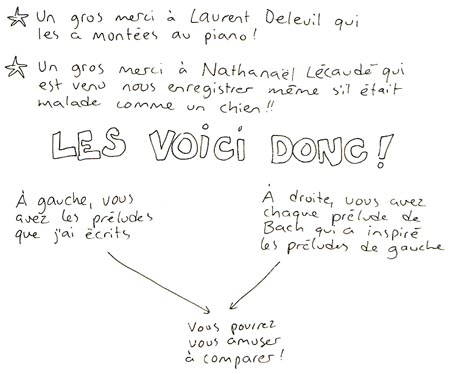 Un gros merci à Laurent Deleuil qui
les a montées au piano!
Un gros merci à Nathanaël Lécaudé qui
est venu nous enregistrer même s'il était
malade comme un chien!!
LES VOICI DONC!
À gauche, vous
avez les préludes
que j'ai écrits
À droite, vous avez
chaque prélude de
Bach qui a inspiré
les préludes de gauche
Vous pourrez
vous amuser
à comparer!